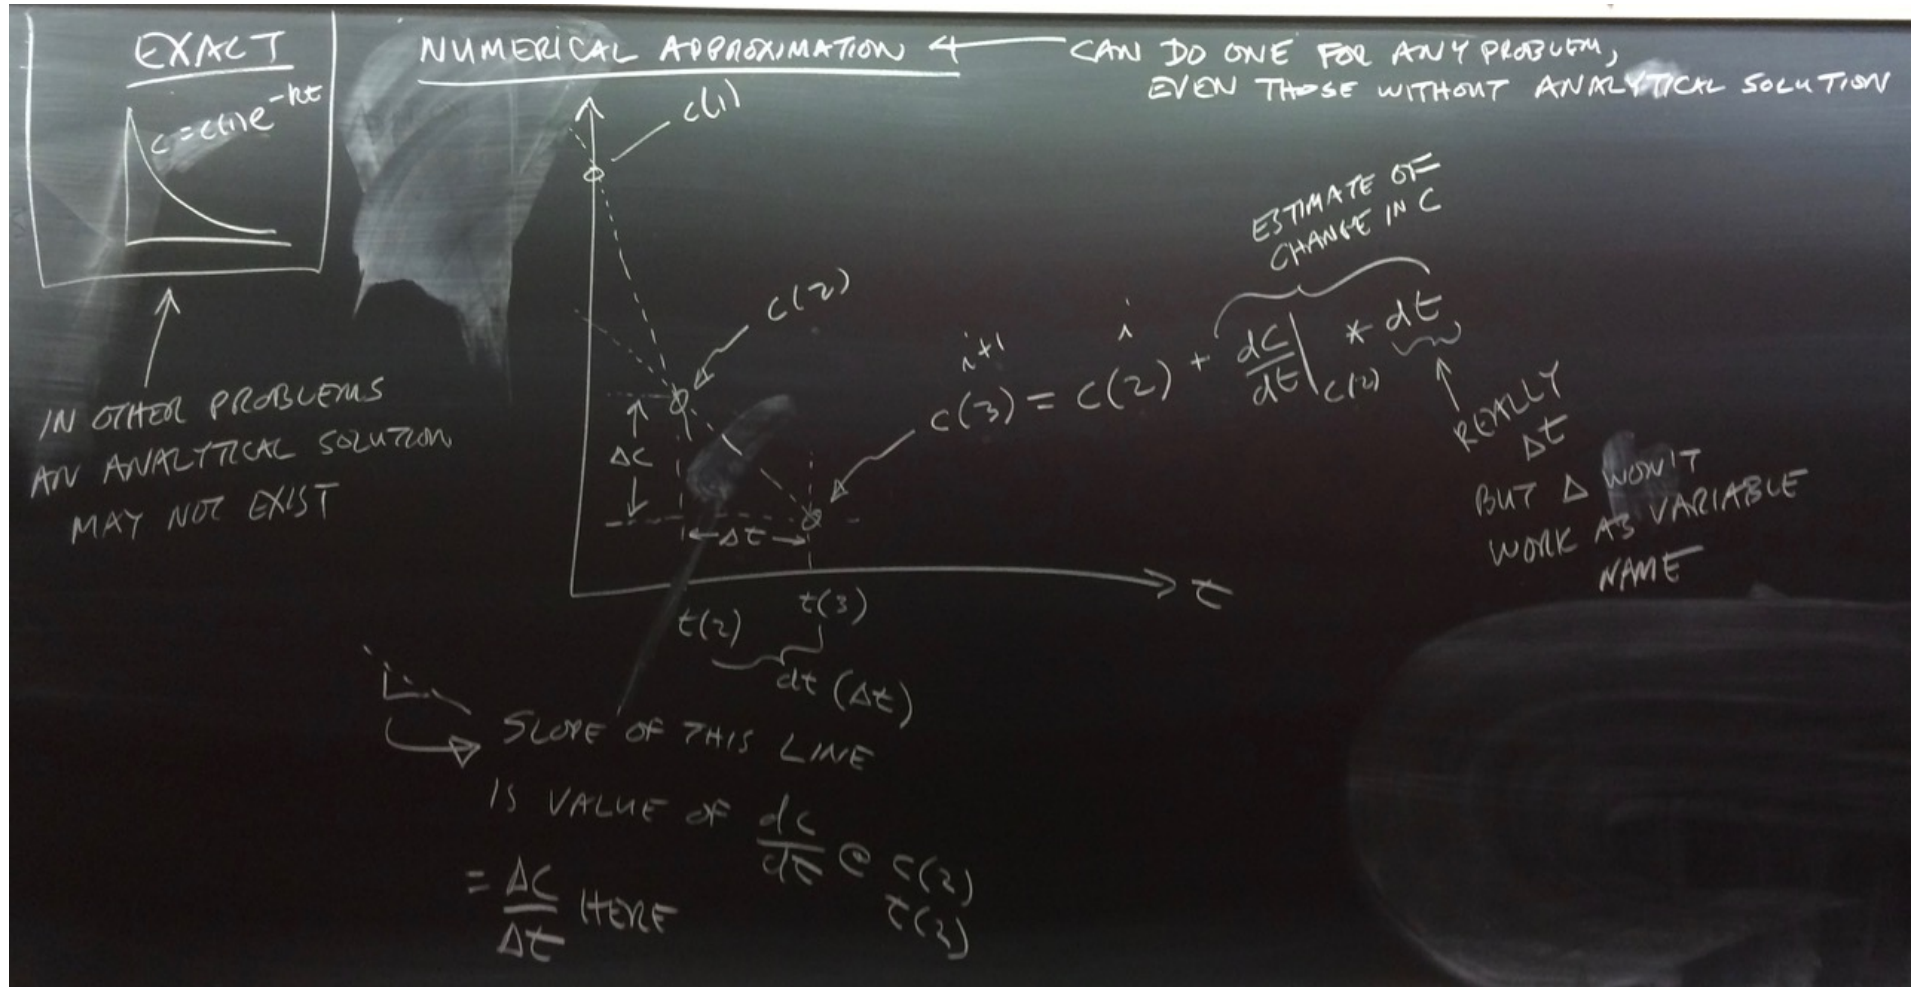 EXACT
C = C(1)e^-kt
IN OTHER PROBLEMS
AN ANALYTICAL SOLUTION
MAY NOT EXIST
NUMERICAL APPROXIMATION
CAN DO ONE FOR ANY PROBLEM,
EVEN THOSE WITHOUT ANALYTICAL SOLUTION
C(1)
C(2)
ΔC
Δt
t
t(2)
t(3)
dt (Δt)
ESTIMATE OF
CHANGE IN C
i+1 i
C(3) = C(2) + dC/dt|C(2) * dt
REALLY
Δt
BUT Δ WON'T
WORK AS VARIABLE
NAME
SLOPE OF THIS LINE
IS VALUE OF dC/dt @ C(2)
t(2)
= ΔC/Δt HERE